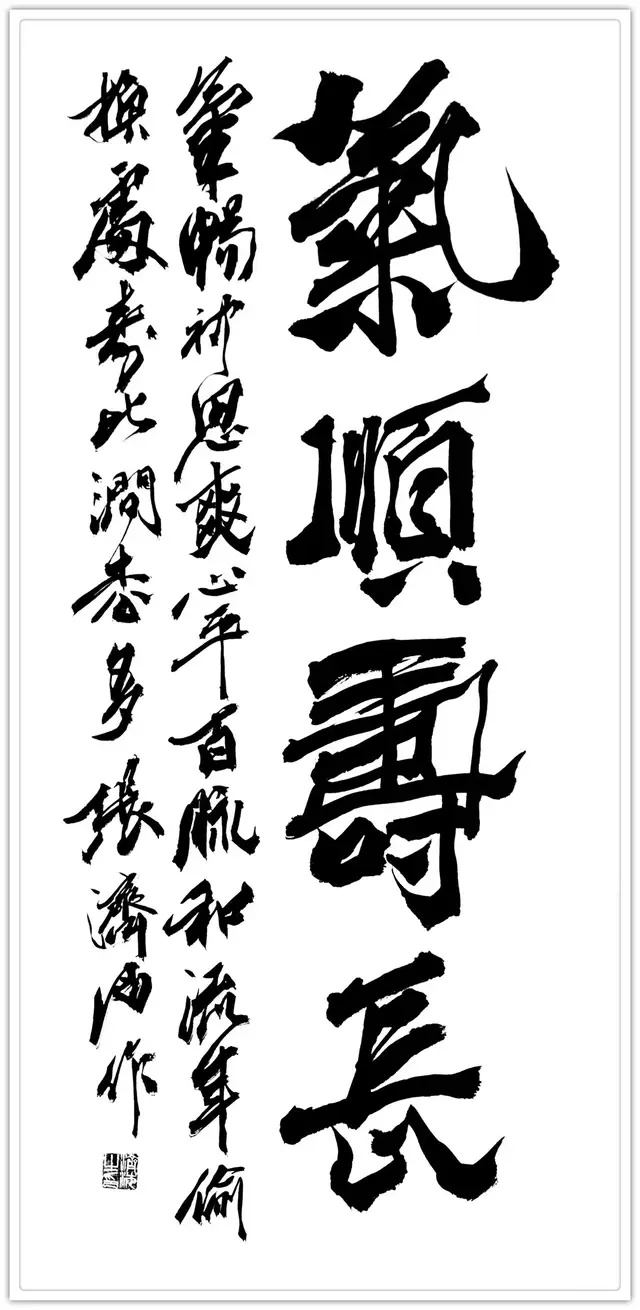 氣順壽長
氣暢神思爽心平百脉和流年偷
換處壽比澗松多張濟海作